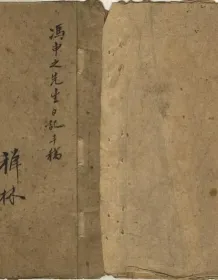 馮申之先生日記手稿
稺林